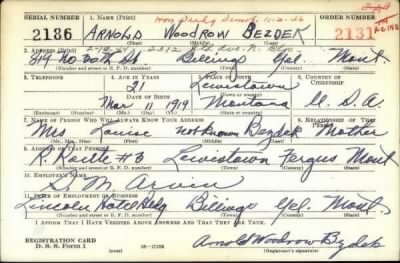 SERIAL NUMBER 1. NAME (Print) ORDER NUMBER
2186 ARNOLD WOODROW BEZDEK 2131
(First) (Middle) (Last)
2. ADDRESS (Print)
819 No 30th St Billings Yel. Mont.
(Number and street or R. F. D. number) (Town) (County) (State)
3. TELEPHONE 4. AGE IN YEARS 5. PLACE OF BIRTH 6. COUNTRY OF CITIZENSHIP
21 Lewistown
DATE OF BIRTH
Mar 11 1919 Montana U. S. A.
(Mo.) (Day) (Yr.)
7. NAME OF PERSON WHO WILL ALWAYS KNOW YOUR ADDRESS 8. RELATIONSHIP OF THAT PERSON
Mrs Louise not known Bezdek Mother
(Mr., Mrs., Miss) (First) (Middle) (Last)
9. ADDRESS OF THAT PERSON
R. Route #3 Lewistown Fergus Mont
(Number and street or R. F. D. number) (Town) (County) (State)
10. EMPLOYER'S NAME
S. M.
11. PLACE OF EMPLOYMENT OR BUSINESS
Lincoln Hotel Bldg Billings Yel. Mont.
(Number and street or R. F. D. number) (Town) (County) (State)
I AFFIRM THAT I HAVE VERIFIED ABOVE ANSWERS AND THAT THEY ARE TRUE.
REGISTRATION CARD
D. S. S. Form 1 16—17105 Arnold Woodrow Bezdek
(Registrant's signature)